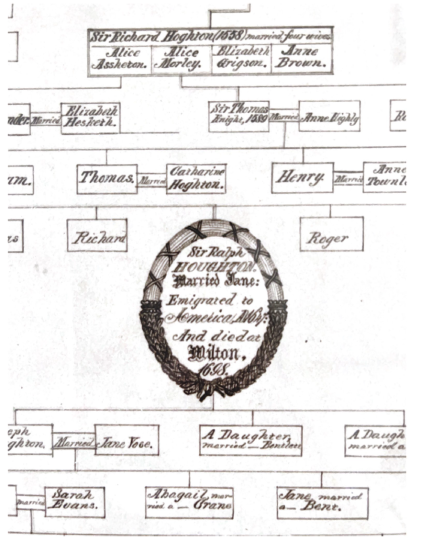 Sir Richard Hoghton (1558) married four wives.
Alice Assheton.
Alice Morley.
Elizabeth Grigson.
Anne Brown.
Married
Elizabeth Hesketh.
Sir Thomas Knight, 1589
Married
Anne Bighly
am.
Thomas.
Married
Catharine Hoghton.
Henry.
Married
Anne
Richard
Roger
Sir Ralph
HOUGHTON.
Married Jane:
Emigrated to
America,
And died at
Milton.
1698.
eph
ghton.
Married
Jane Vose.
A Daughter,
married
A Daugh
married a
married
Sarah Evans.
Abagail, mar-
ried a — Crane
Jane, married
a — Bent.